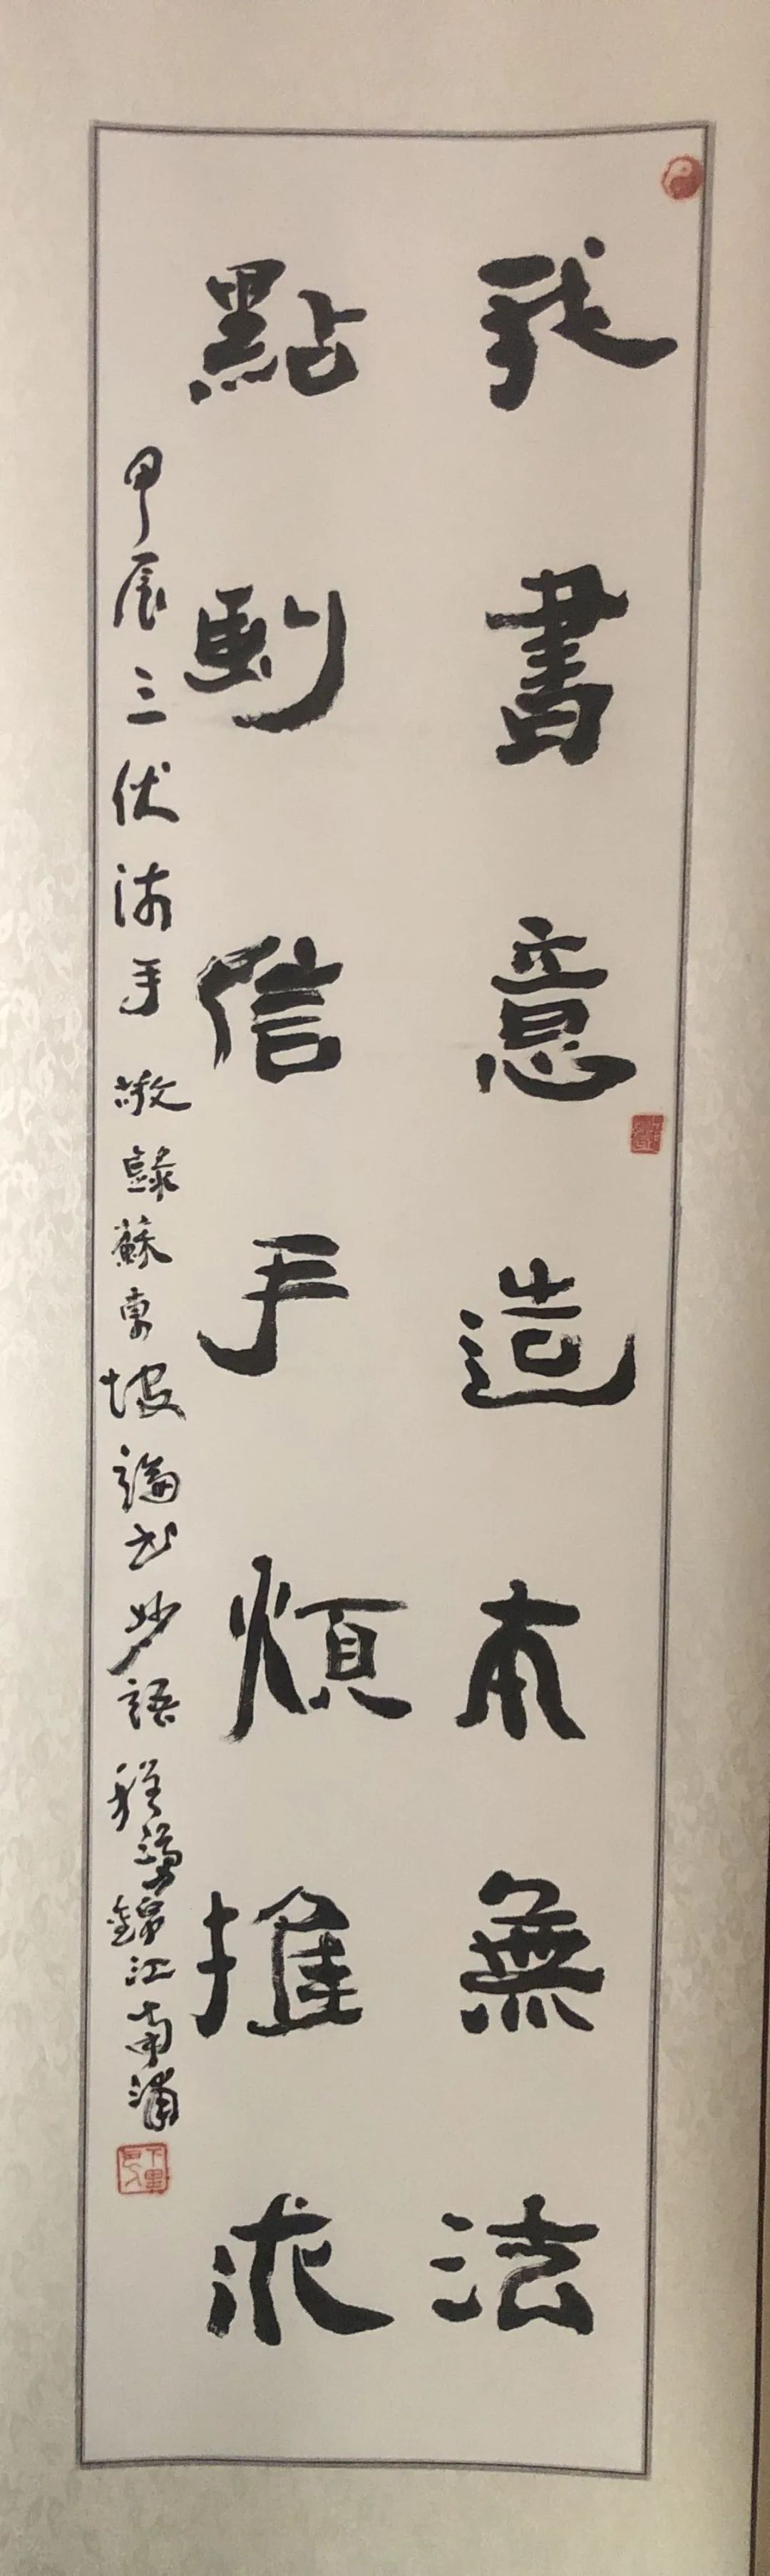 我書意造本無法
點劃信手煩推求
甲辰三伏沐手敬錄蘇東坡論書妙語程勇錦江南浦